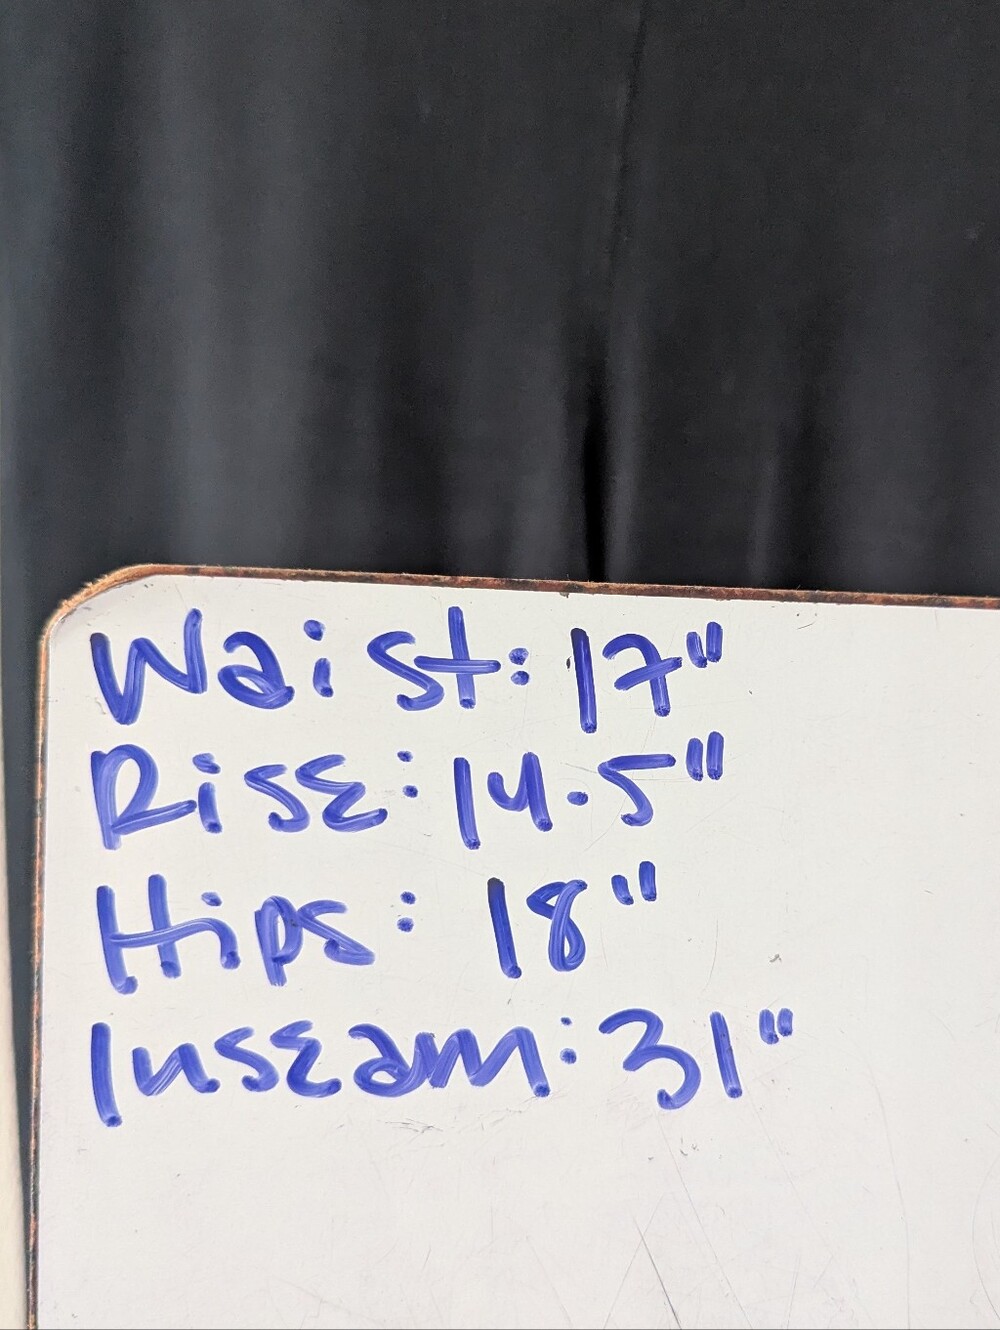 Waist: 17"
Rise: 14.5"
Hips: 18"
Inseam: 31"